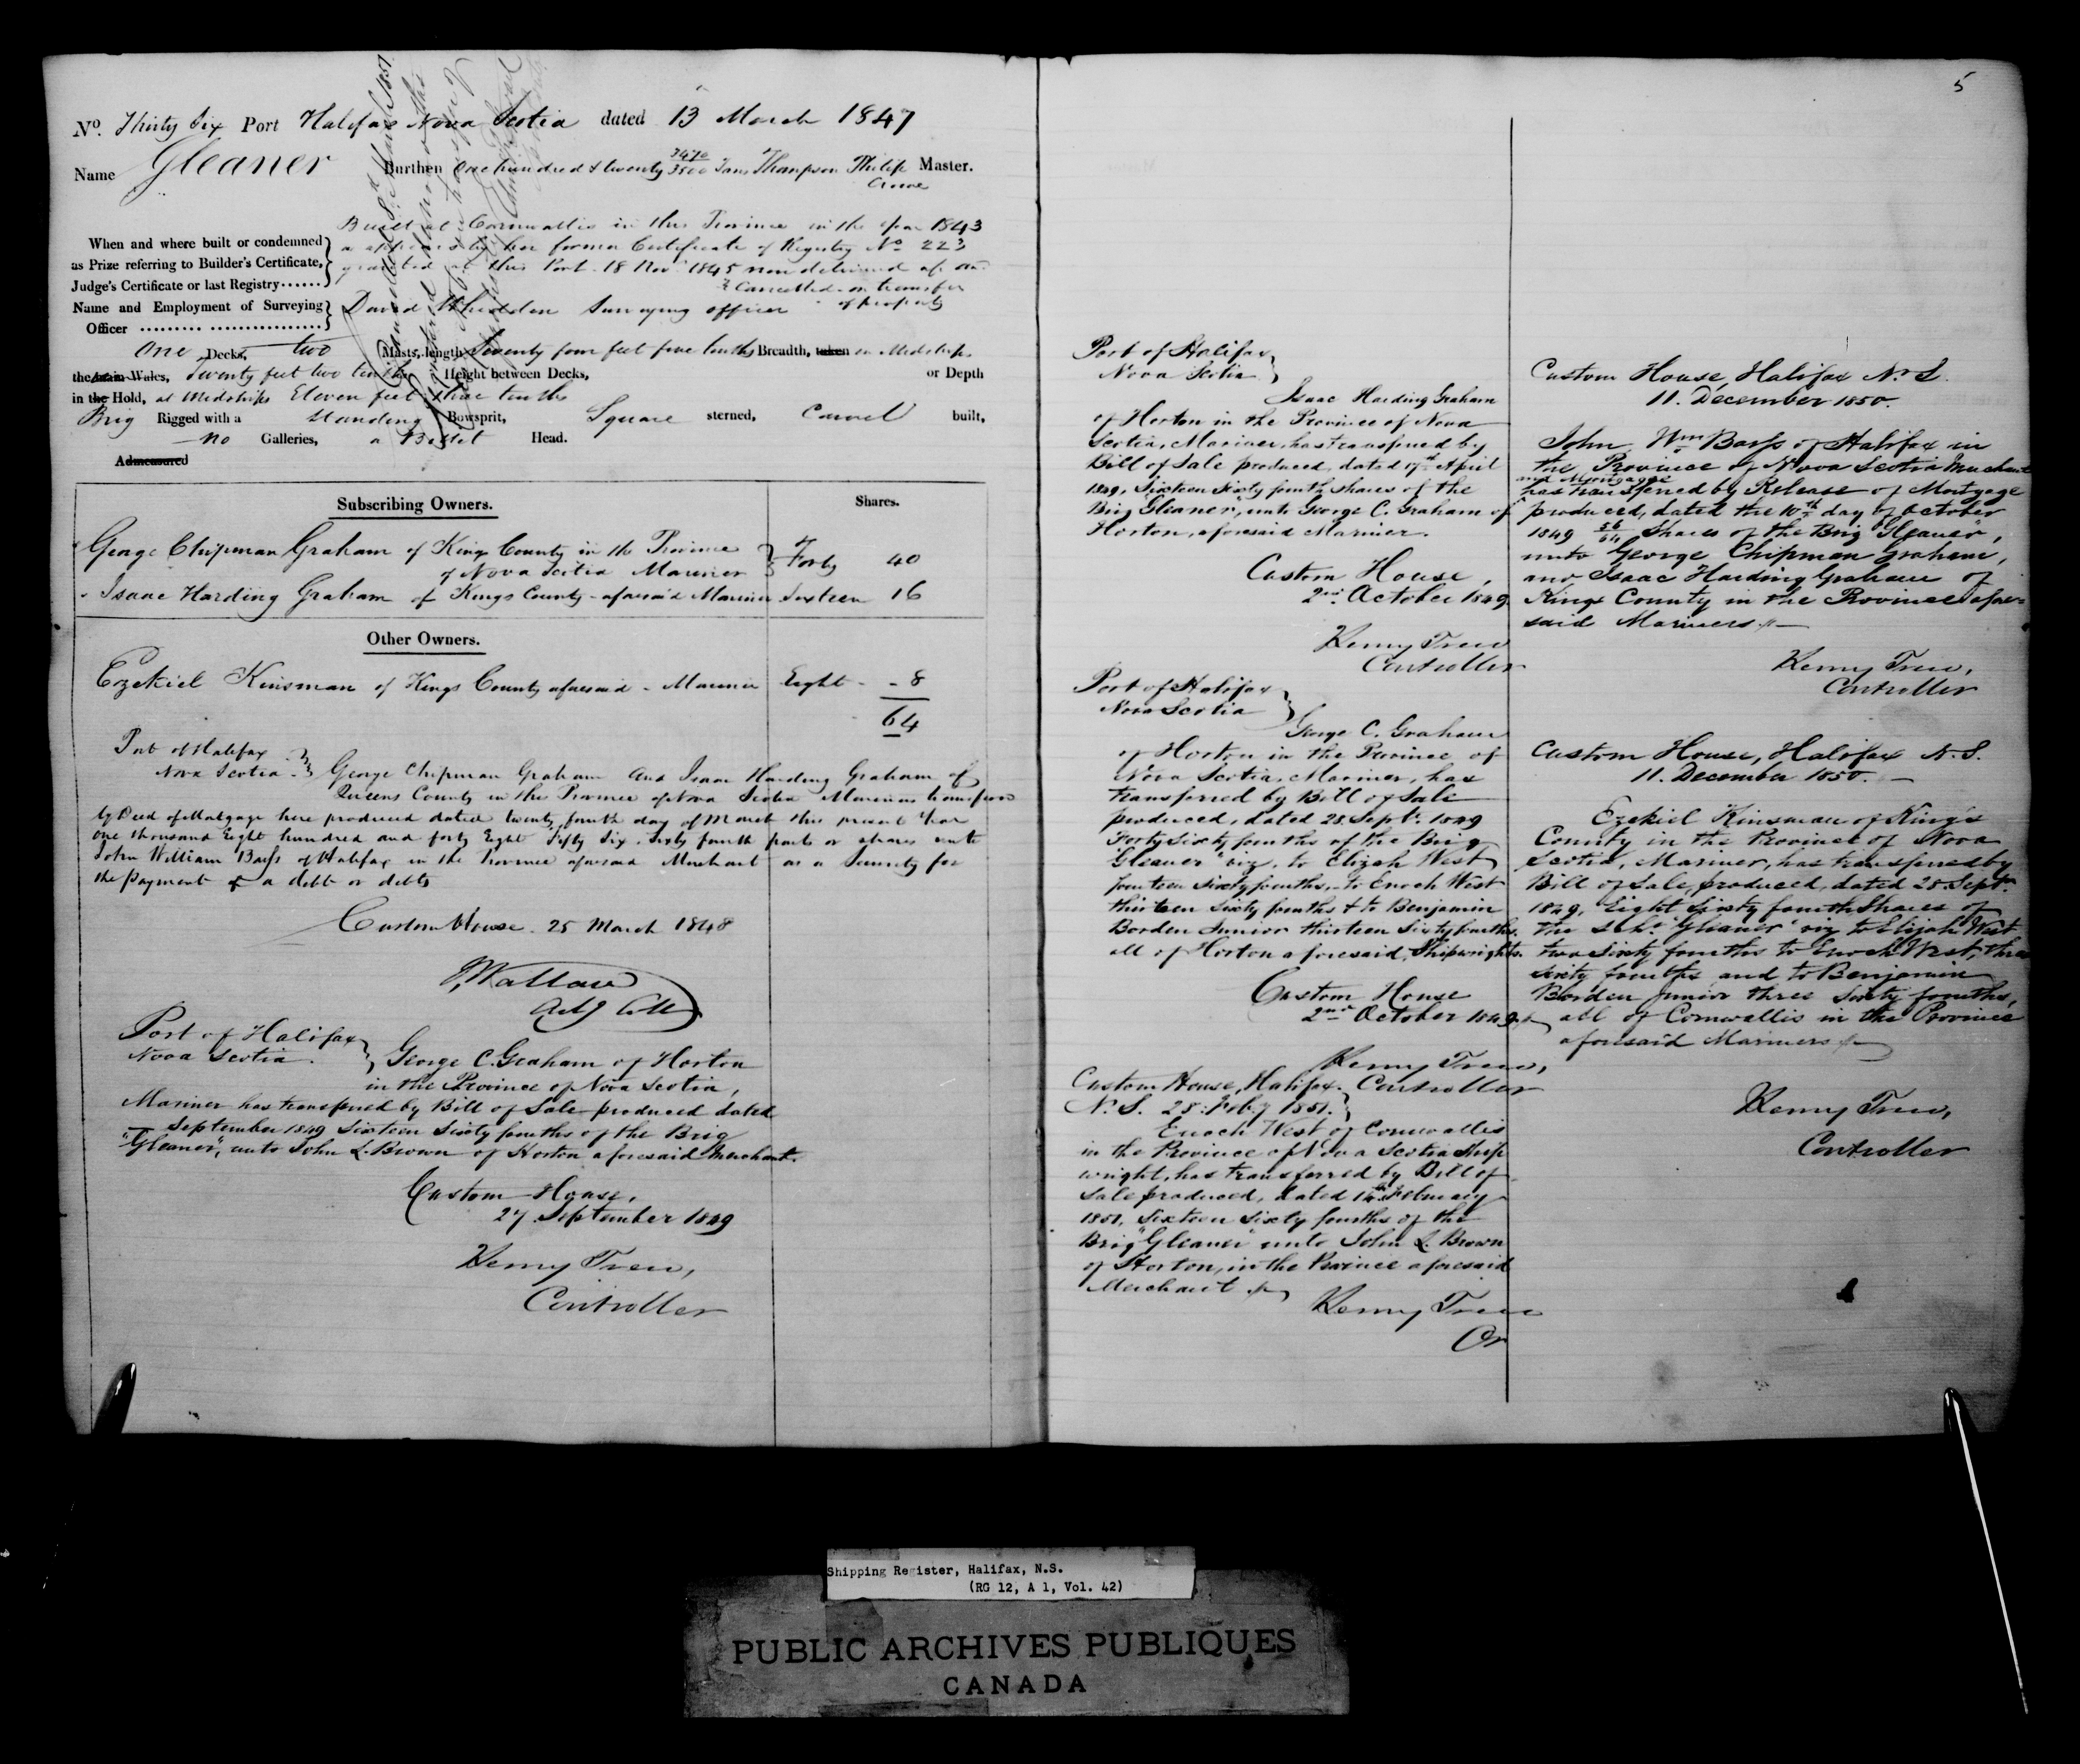 5
No. Thirty Six Port Halifax Nova Scotia dated 13 March 1847
Name Gleaner Burthen One hundred & twenty 3470/3500 Tons Thompson Philip Master.
Crowe
Built at Cornwallis in this Province in the year 1843
When and where built or condemned
as Prize referring to Builder's Certificate,
Judge's Certificate or last Registry......
as appears by her former Certificate of Registry No 223
granted at this Port 18 Nov 1845 now delivered up and
Cancelled on transfer
of property
Name and Employment of Surveying
Officer ......... ................
David Whidden Surveying officer
One Decks, two Masts, length Seventy four feet five tenths Breadth, taken in Midships
the main Wales, Twenty feet two tenths Height between Decks, or Depth
in the Hold, at Midships Eleven feet three tenths
Brig Rigged with a Standing Bowsprit, Square sterned, Carvel built,
No Galleries, a Billet Head.
Admeasured
Subscribing Owners. Shares.
George Chipman Graham of Kings County in the Province
of Nova Scotia Mariner Forty 40
Isaac Harding Graham of Kings County aforesaid Mariner Sixteen 16
Other Owners.
Ezekiel Kinsman of Kings County aforesaid - Mariner Eight - - 8
64
Port of Halifax
Nova Scotia George Chipman Graham and Isaac Harding Graham of
Queens County in the Province of Nova Scotia Mariners transferred
by Deed of Mortgage here produced dated twenty fourth day of March this present Year
One thousand Eight hundred and forty Eight Fifty Six Sixty fourth parts or shares unto
John William Barss of Halifax in the Province aforesaid Merchant as a Security for
the payment of a debt or debts
Custom House 25 March 1848
Wallace
Port of Halifax
Nova Scotia. George C. Graham of Horton
in the Province of Nova Scotia,
Mariner has transferred by Bill of Sale produced dated
September 1849 Sixteen Sixty fourths of the Brig
"Gleaner", unto John L. Brown of Horton aforesaid Merchant.
Custom House,
27 September 1849
Henry Trew,
Controller
Port of Halifax
Nova Scotia
Isaac Harding Graham
of Horton in the Province of Nova
Scotia, Mariner, has transferred by
Bill of Sale produced, dated 17th April
1849, Sixteen Sixty fourth shares of the
Brig "Gleaner", unto George C. Graham of
Horton, aforesaid Mariner.
Custom House,
2nd October 1849
Henry Trew
Controller
Port of Halifax
Nova Scotia
George C. Graham
of Horton in the Province of
Nova Scotia, Mariner, has
transferred by Bill of Sale
produced, dated 28 Sept. 1849
Forty Sixty fourths of the Brig
Gleaner" viz. to Elijah West
fourteen Sixty fourths, to Enoch West
thirteen Sixty fourths & to Benjamin
Borden Junior thirteen Sixty fourths.
all of Horton aforesaid, Shipwrights.
Custom House
2nd October 1849
Henry Trew,
Controller
Custom House, Halifax.
N.S. 28. Feby 1851.
Enoch West of Cornwallis
in the Province of Nova Scotia Ship
wright, has transferred by Bill of
Sale produced, dated 14th February
1851, Sixteen Sixty fourths of the
Brig "Gleaner" unto John L. Brown
of Horton, in the Province aforesaid
Merchant
Henry Trew
Cr
Custom House, Halifax N.S.
11. December 1850.
John Wm Barss of Halifax in
the Province of Nova Scotia Merchant
and Mortgagee
has transferred by Release of Mortgage
produced, dated the 10th day of October
1849 56/64 Shares of the Brig "Gleaner",
unto George Chipman Graham,
and Isaac Harding Graham of
Kings County in the Province afore-
said Mariners
Henry Trew,
Controller
Custom House, Halifax N.S.
11. December 1850.
Ezekiel Kinsman of King's
County in the Province of Nova
Scotia, Mariner, has transferred by
Bill of Sale, produced, dated 28 Septr.
1849, Eight Sixty fourth Shares of
the Schr. "Gleaner" viz to Elijah West
two Sixty fourths to Enoch West, three
Sixty fourths and to Benjamin
Borden junior three Sixty fourths,
all of Cornwallis in the Province
aforesaid Mariners
Henry Trew,
Controller
Shipping Register, Halifax, N.S.
(RG 12, A 1, Vol. 42)
PUBLIC ARCHIVES PUBLIQUES
CANADA